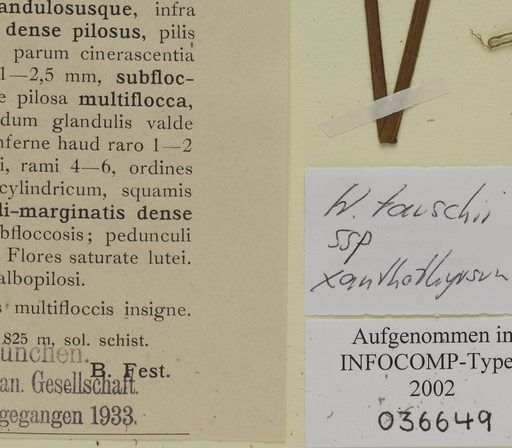 andulosusque, infra
dense pilosus, pilis
parum cinerascentia
1—2,5 mm, subfloc-
e pilosa multiflocca,
dum glandulis valde
nferne haud raro 1—2
i, rami 4—6, ordines
cylindricum, squamis
li-marginatis dense
bfloccosis; pedunculi
Flores saturate lutei.
albopilosi.
s multifloccis insigne.
825 m, sol. schist.
ünchen.
B. Fest.
an. Gesellschaft.
gegangen 1933.
H. tauschii
ssp
xanthothyrsum
Aufgenommen in
INFOCOMP-Type
2002
036649